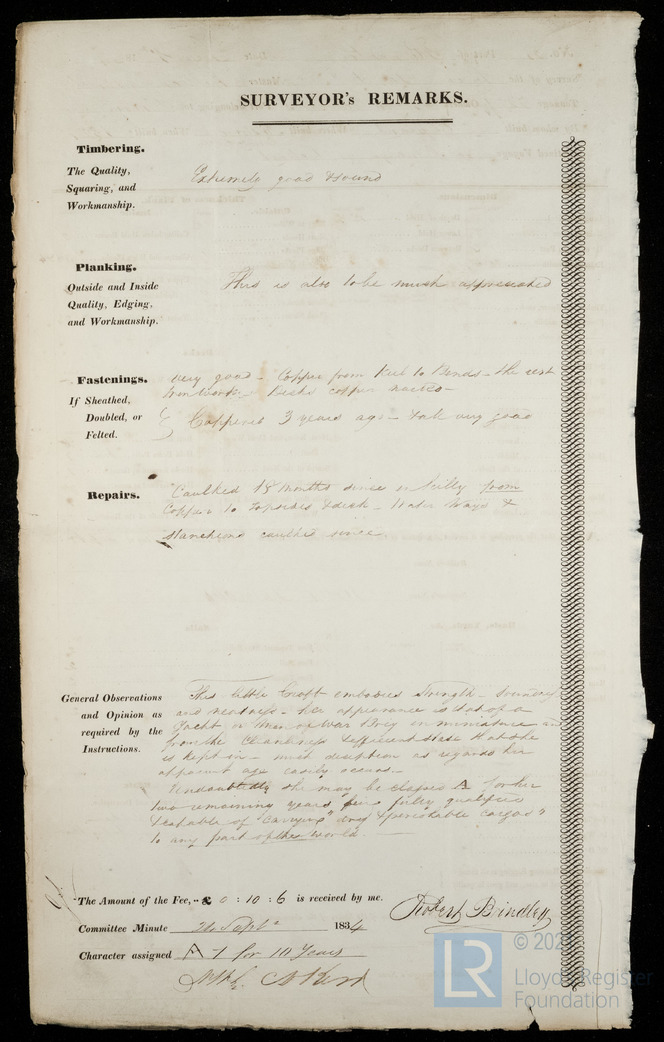 SURVEYOR's REMARKS.
Timbering.
The Quality,
Squaring, and
Workmanship.
Extremely good & sound
Planking.
Outside and Inside
Quality, Edging,
and Workmanship.
This is also to be much appreciated
Fastenings.
If Sheathed,
Doubled, or
Felted.
very good - Copper from Keel to Bends - the rest
Iron Work - Decks copper nailed -
Coppered 3 years ago - & all very good
Repairs.
Caulked 18 months since in from
Copper to Topsides & deck - Water Ways &
Stanchions caulked since
General Observations
and Opinion as
required by the
Instructions.
This little Craft embodies Strength - Soundness
and neatness - her appearance is that of a
Yacht or Man of War Brig in miniature and
from the Cleanliness & efficient state that she
is kept in - much deception as regards her
apparent age easily occurs -
Undoubtedly she may be classed A for her
two remaining years fully qualified
& capable of "carrying dry & perishable cargoes"
to any part of the world.
The Amount of the Fee, £ 0 : 10 : 6 is received by me.
Robert Brindley
Committee Minute 24 Septr 1834
Character assigned A 1 for 10 Years
© 202
Lloyd's Register
Foundation
LR